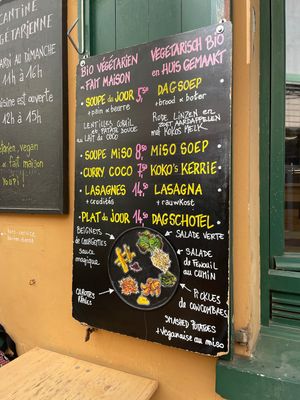 CANTINE
VÉGÉTARIENNE
MARDI AU DIMANCHE
11h À 16h
cuisine est ouverte
12h À 15h
vegan
FAIT MAISON
YOUPI!
BIO VÉGÉTARIEN VEGETARISCH BIO
EN FAIT MAISON EN HUIS GEMAAKT
SOUPE DU JOUR 5,50 DAGSOEP
+ pain & beurre + brood & boter
LENTILLES CORAIL RODE LINZEN EN
et PATATE DOUCE ZOET AARDAPPELEN
AU LAIT DU COCO MET KOKOS MELK
SOUPE MISO 8,50 MISO SOEP
CURRY COCO 7,50 KOKO'S KERRIE
LASAGNES 14,50 LASAGNA
+ crudités + rauwkost
PLAT DU JOUR 14,50 DAGSCHOTEL
BEIGNETS SALADE VERTE
DE COURGETTES
SAUCE SALADE DE
magique FENOUIL AU
CUMIN
CAROTTES PICKLES
RÂPÉES DE CONCOMBRES
SMASHED POTATOES
+ Veganaise au miso